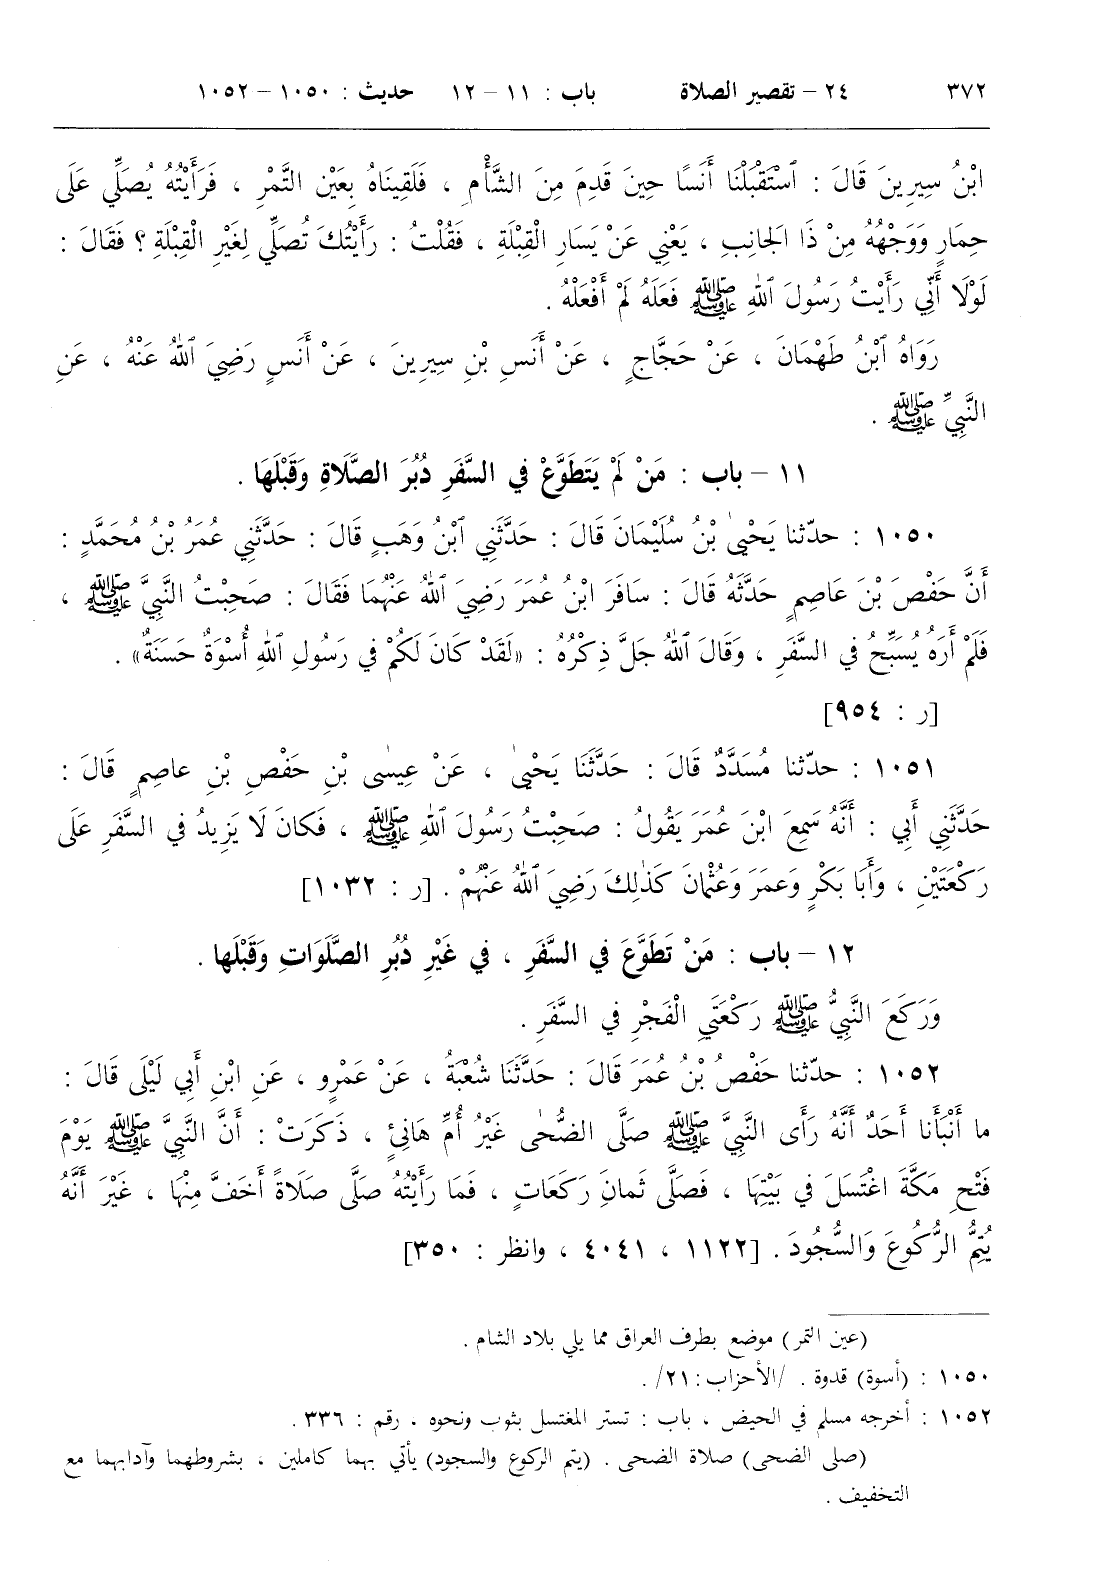 ٣٧٢ ٢٤ – تقصير الصلاة باب : ١١ – ١٢ حديث : ١٠٥٠ – ١٠٥٢
ابْنُ سِيرِينَ قَالَ : ٱسْتَقْبَلْنَا أَنَسًا حِينَ قَدِمَ مِنَ الشَّأْمِ ، فَلَقِينَاهُ بِعَيْنِ التَّمْرِ ، فَرَأَيْتُهُ يُصَلِّي عَلَى
حِمَارٍ وَوَجْهُهُ مِنْ ذَا الجَانِبِ ، يَعْنِي عَنْ يَسَارِ الْقِبْلَةِ ، فَقُلْتُ : رَأَيْتُكَ تُصَلِّي لِغَيْرِ الْقِبْلَةِ ؟ فَقَالَ :
لَوْلَا أَنِّي رَأَيْتُ رَسُولَ ٱللهِ ﷺ فَعَلَهُ لَمْ أَفْعَلْهُ .
رَوَاهُ ٱبْنُ طَهْمَانَ ، عَنْ حَجَّاجٍ ، عَنْ أَنَسِ بْنِ سِيرِينَ ، عَنْ أَنَسٍ رَضِيَ ٱللهُ عَنْهُ ، عَنِ
النَّبِيِّ ﷺ .
١١ – باب : مَنْ لَمْ يَتَطَوَّعْ فِي السَّفَرِ دُبُرَ الصَّلَاةِ وَقَبْلَهَا .
١٠٥٠ : حدّثنا يَحْيَىٰ بْنُ سُلَيْمَانَ قَالَ : حَدَّثَنِي ٱبْنُ وَهَبٍ قَالَ : حَدَّثَنِي عُمَرُ بْنُ مُحَمَّدٍ :
أَنَّ حَفْصَ بْنَ عَاصِمٍ حَدَّثَهُ قَالَ : سَافَرَ ابْنُ عُمَرَ رَضِيَ ٱللهُ عَنْهُمَا فَقَالَ : صَحِبْتُ النَّبِيَّ ﷺ ،
فَلَمْ أَرَهُ يُسَبِّحُ فِي السَّفَرِ ، وَقَالَ ٱللهُ جَلَّ ذِكْرُهُ : «لَقَدْ كَانَ لَكُمْ فِي رَسُولِ ٱللهِ أُسْوَةٌ حَسَنَةٌ» .
[ر : ٩٥٤]
١٠٥١ : حدّثنا مُسَدَّدٌ قَالَ : حَدَّثَنَا يَحْيَىٰ ، عَنْ عِيسٰى بْنِ حَفْصِ بْنِ عاصِمٍ قَالَ :
حَدَّثَنِي أَبِي : أَنَّهُ سَمِعَ ابْنَ عُمَرَ يَقُولُ : صَحِبْتُ رَسُولَ ٱللهِ ﷺ ، فَكانَ لَا يَزِيدُ فِي السَّفَرِ عَلَى
رَكْعَتَيْنِ ، وَأَبَا بَكْرٍ وَعمَرَ وَعُثْمانَ كَذٰلِكَ رَضِيَ ٱللهُ عَنْهُمْ . [ر : ١٠٣٢]
١٢ – باب : مَنْ تَطَوَّعَ فِي السَّفَرِ ، فِي غَيْرِ دُبُرِ الصَّلَوَاتِ وَقَبْلَها .
وَرَكَعَ النَّبِيُّ ﷺ رَكْعَتَيِ الْفَجْرِ فِي السَّفَرِ .
١٠٥٢ : حدّثنا حَفْصُ بْنُ عُمَرَ قَالَ : حَدَّثَنَا شُعْبَةُ ، عَنْ عَمْرٍو ، عَنِ ابْنِ أَبِي لَيْلَى قَالَ :
ما أَنْبَأَنا أَحَدٌ أَنَّهُ رَأَى النَّبِيَّ ﷺ صَلَّى الضُّحٰى غَيْرُ أُمِّ هَانِئٍ ، ذَكَرَتْ : أَنَّ النَّبِيَّ ﷺ يَوْمَ
فَتْحِ مَكَّةَ اغْتَسَلَ فِي بَيْتِهَا ، فَصَلَّى ثَمانِ رَكَعَاتٍ ، فَمَا رَأَيْتُهُ صَلَّى صَلَاةً أَخَفَّ مِنْهَا ، غَيْرَ أَنَّهُ
يُتِمُّ الرُّكُوعَ وَالسُّجُودَ . [١١٢٢ ، ٤٠٤١ ، وانظر : ٣٥٠]
(عين التمر) موضع بطرف العراق مما يلي بلاد الشام .
١٠٥٠ : (أسوة) قدوة . /الأحزاب : ٢١/ .
١٠٥٢ : أخرجه مسلم في الحيض ، باب : تستر المغتسل بثوب ونحوه . رقم : ٣٣٦ .
(صلى الضحى) صلاة الضحى . (يتم الركوع والسجود) يأتي بهما كاملين ، بشروطهما وآدابهما مع
التخفيف .